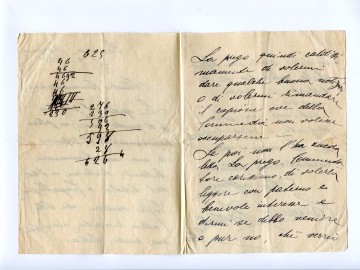 623
46
46
4692
46
46
230
246
239
598
24
626 4
La prego quindi caldis
simamente di volermi
dare qualche buona notizia
o di volermi rimandare
il copione ove della
commedia non volesse
occuparsene
Se poi non l'ha ancora
letta La prego, Commenda
tore carissimo di volerla
leggere con paterno e
benevole interesse e
dirmi se debbo venire
o pur no chè verrei